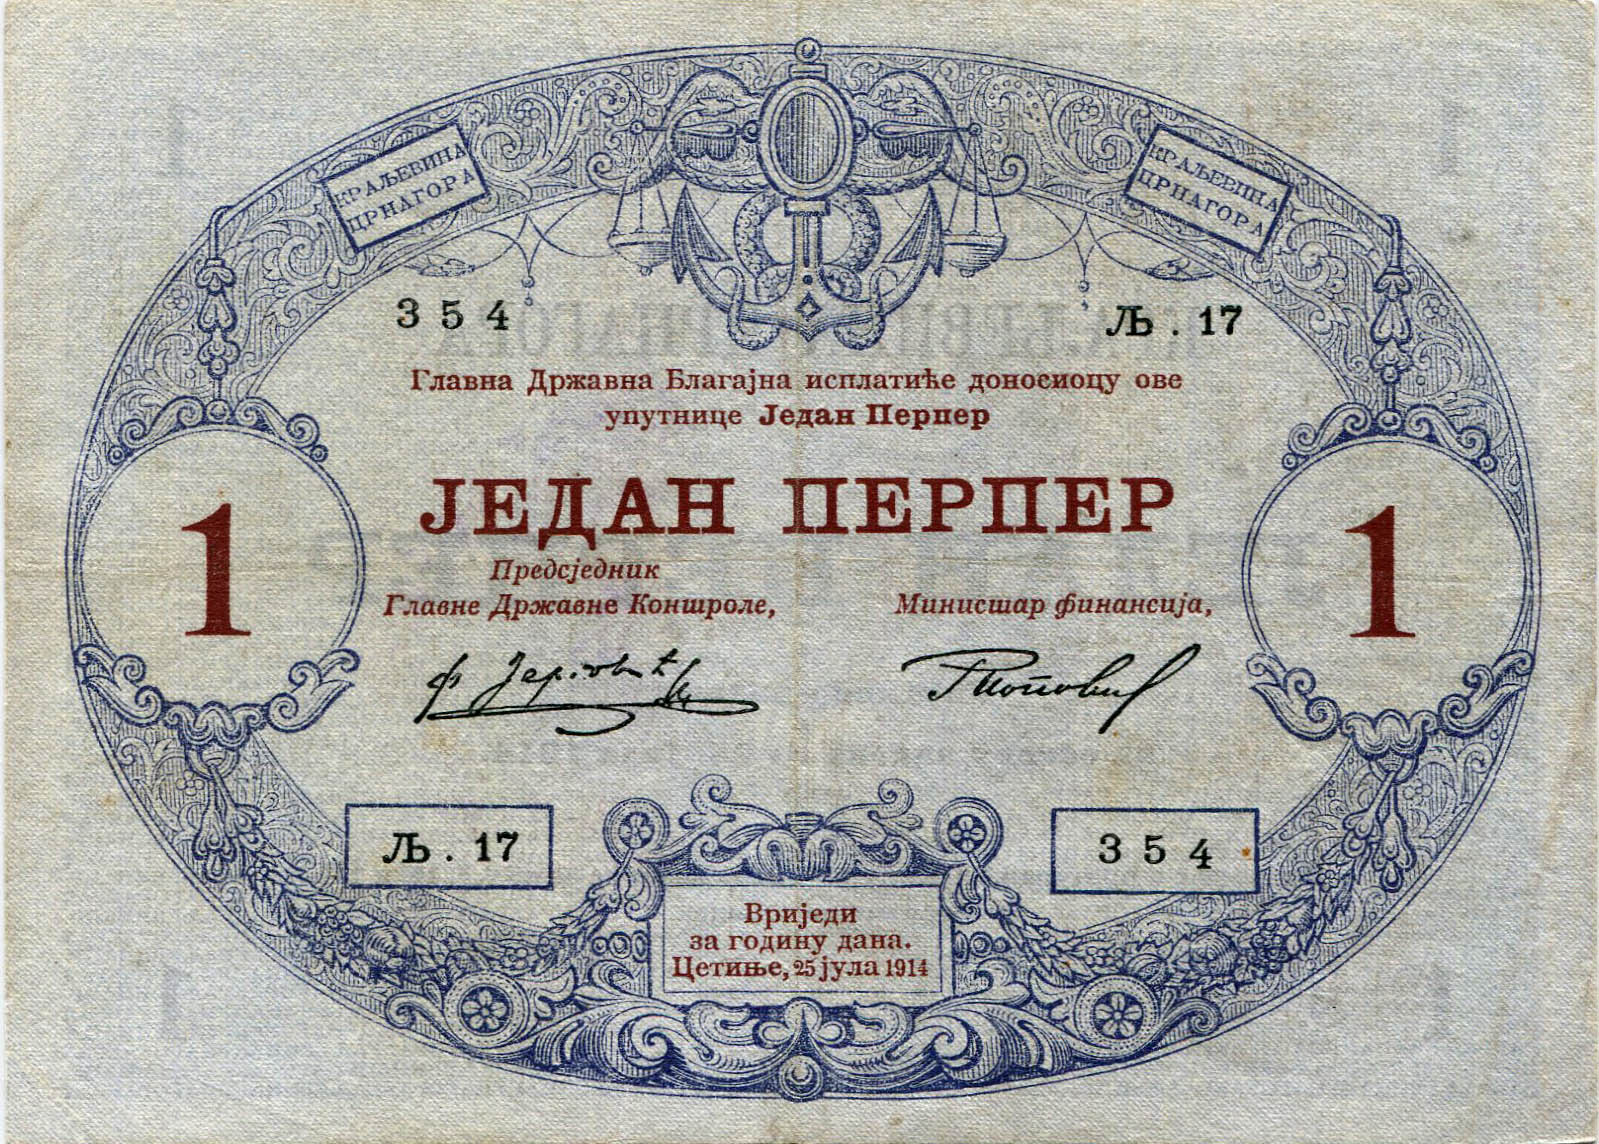 КРАЉЕВИНА
ЦРНАГОРА
КРАЉЕВИНА
ЦРНАГОРА
354
Љ. 17
Главна Државна Благајна исплатиће доносиоцу ове
упутнице Један Перпер
ЈЕДАН ПЕРПЕР
1
1
Предсједник
Главне Државне Контроле,
Министар финансија,
Љ. 17
354
Вриједи
за годину дана.
Цетиње, 25 јула 1914